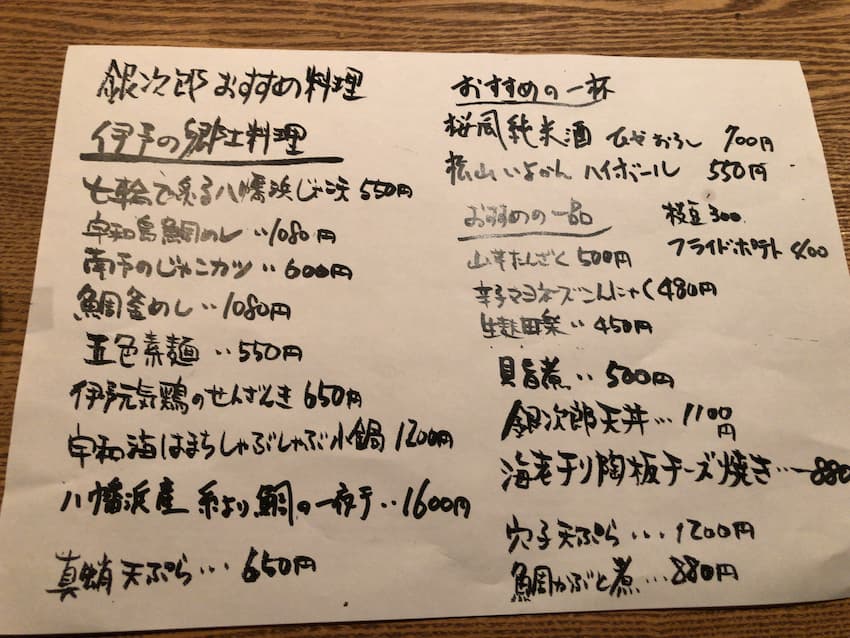 銀次郎おすすめ料理
伊予の郷土料理
七輪で炙る八幡浜じゃこ天 550円
宇和島鯛めし‥1080円
南予のじゃこカツ‥600円
鯛釜めし‥1080円
五色素麺‥550円
伊予元気鶏のせんざんき 650円
宇和海はまちしゃぶしゃぶ小鍋 1200円
八幡浜産 糸より鯛の一夜干‥1600円
真蛸天ぷら… 650円
おすすめの一杯
桜風純米酒 ひやおろし 700円
松山いよかんハイボール 550円
おすすめの一品
枝豆300
フライドポテト 400
山芋たんざく 500円
辛子マヨネーズこんにゃく480円
生麩田楽‥450円
貝旨煮‥500円
銀次郎天丼…1100円
海老チリ陶板チーズ焼き…880
穴子天ぷら…1200円
鯛かぶと煮…880円